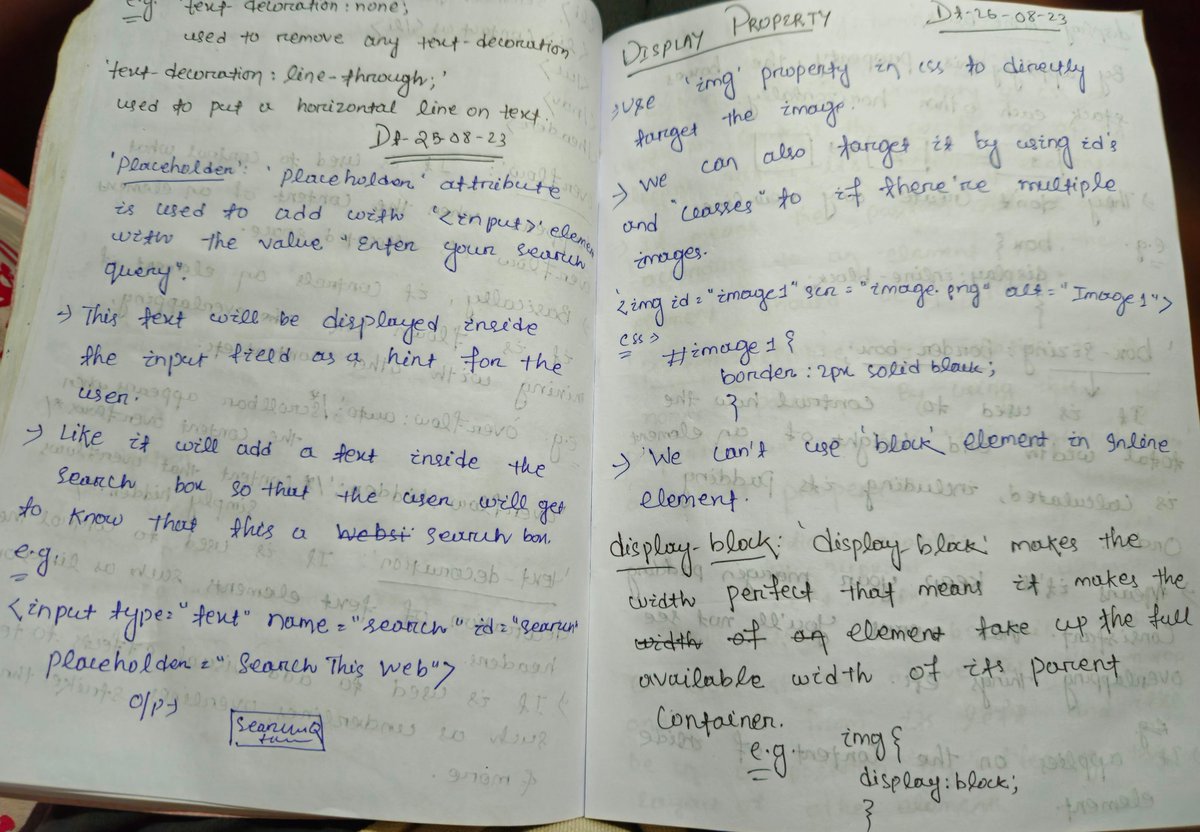 e.g. 'text-decoration: none;
used to remove any text-decoration
'text-decoration: line-through;'
used to put a horizontal line on text.
Dt-25-08-23
'Placeholder': 'placeholder' attribute
is used to add with '<input>' elemen
with the value "Enter your search
query".
→ This text will be displayed inside
the input field as a hint for the
user.
→ Like it will add a text inside the
search box so that the user will get
to know that this a websi search box.
e.g.
<input type="text" name="search" id="search"
placeholder="Search This web">
O/P→
DISPLAY PROPERTY Dt-26-08-23
→ use 'img' property in css to directly
target the image.
→ We can also target it by using id's
and "classes" to if there're multiple
images.
'<img id="image1" src="image.png" alt="Image1">
css>
#image1 {
border: 2px solid black;
}
→ 'We can't use 'block' element in Inline
element.
display-block: 'display-block' makes the
width perfect that means it makes the
width of an element take up the full
available width of its parent
Container.
e.g. img {
display: block;
}